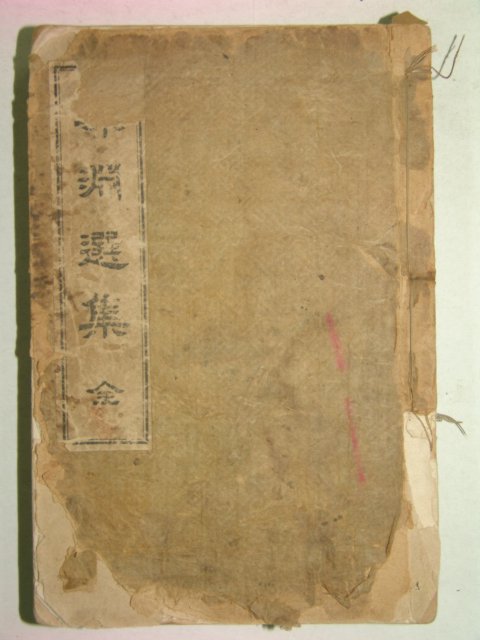 淵選集 全